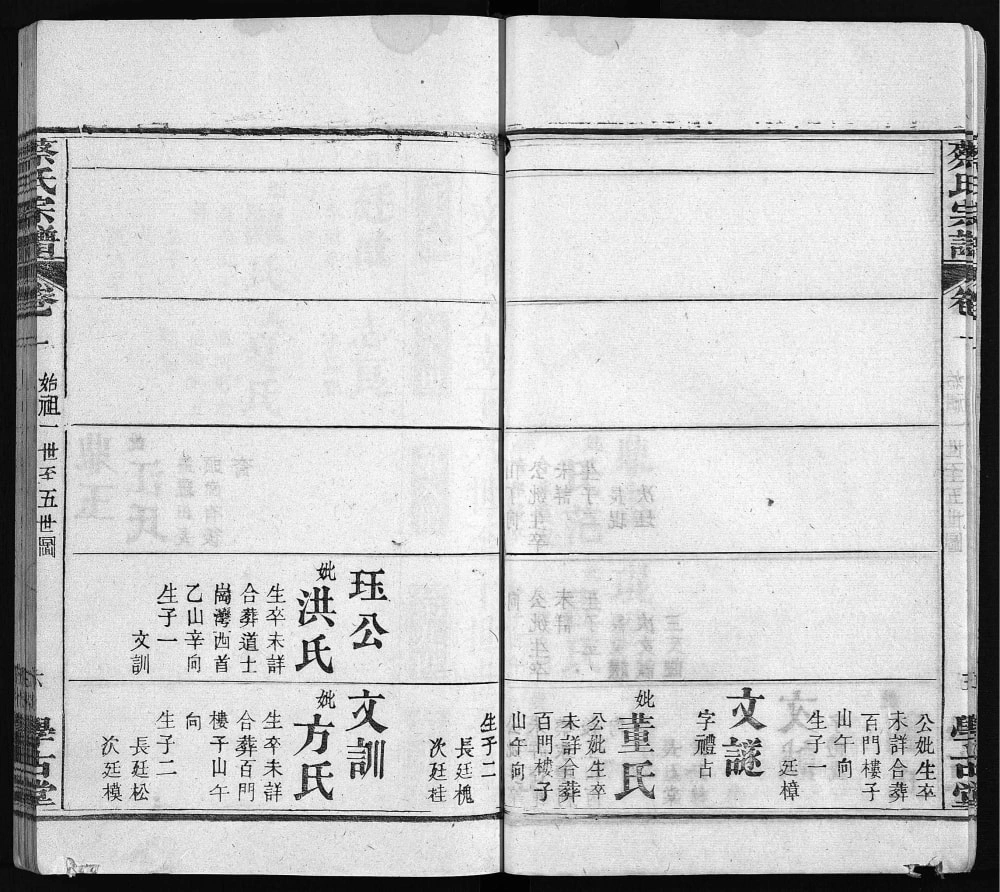 蔡氏宗譜
卷一
五
學古堂
公妣生卒
未詳合葬
百門樓子
山午向
生子一
廷樟
文謎
字禮占
妣董氏
公妣生卒
未詳合葬
百門樓子
山午向
生子二
長廷槐
次廷桂
珏公
妣洪氏
生卒未詳
合葬道士
崗灣西首
乙山辛向
生子一
文訓
文訓
妣方氏
生卒未詳
合葬百門
樓子山午
向
生子二
長廷松
次廷模
蔡氏宗譜
卷一
始祖一世至五世圖
六
學古堂